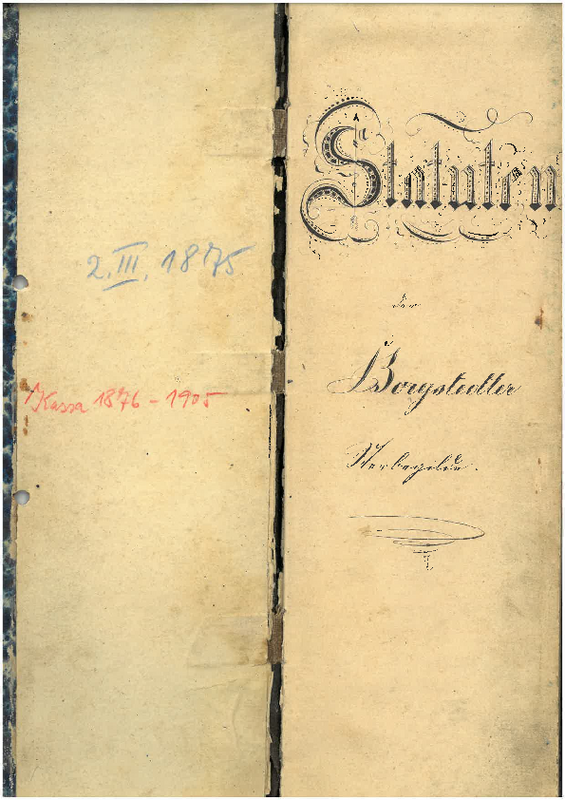 2. III. 1875
Kassa 1876 - 1905
Statuten
der
Borgstedter
Sterbegilde.